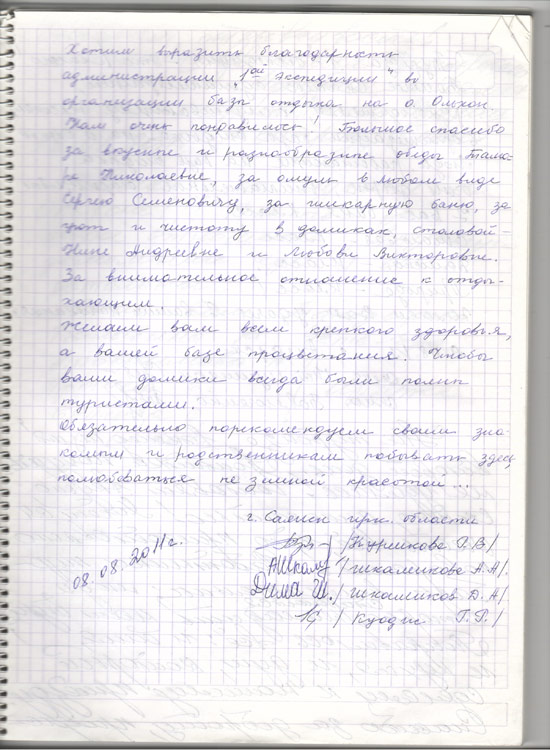 Хотим выразить благодарность
администрации „1ой экспедиции" во
организации базы отдыха на о. Ольхон.
Нам очень понравилось! Большое спасибо
за вкусные и разнообразные обеды Тама-
ре Николаевне, за омуль в любом виде
Сергею Семеновичу, за шикарную баню, за
уют и чистоту в домиках, столовой -
Нине Андреевне и Любови Викторовне.
За внимательное отношение к отды-
хающим.
Желаем вам всем крепкого здоровья,
а вашей базе процветания. Чтобы
ваши домики всегда были полны
туристами.
Обязательно порекомендуем своим зна-
комым и родственникам побывать здесь,
полюбоваться не земной красотой...
г. Саянск ирк. области
08.08.2011г.
/ Г.В/
АШкаму /Шкамикова А.А/.
Дима Ш. /Шкамиков Д.А/
/ Куодис Г.Г./